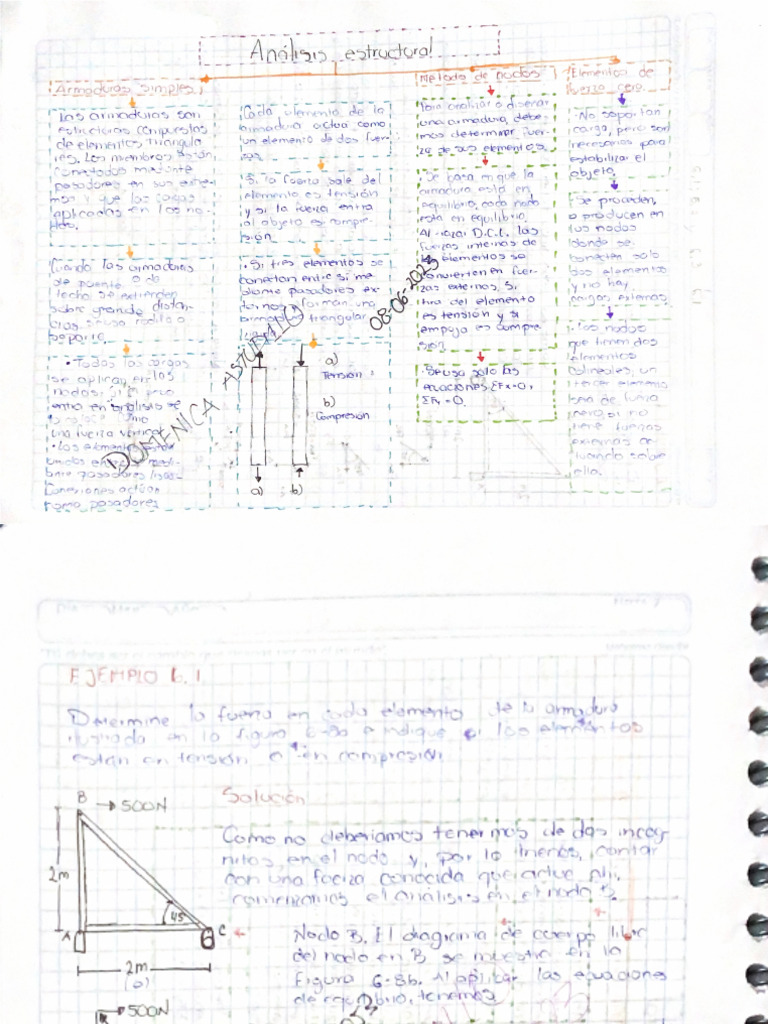 Análisis estructural
Armaduras simples
Las armaduras son
estructuras compuestas
de elementos triangula
res. Los miembros están
conectados mediante
pasadores en sus extre
mos y que las cargas
aplicadas en los no-
dos.
Cuando las armaduras
de puente o de
techo se extienden
sobre grande distan
cias, se usa rodillo o
soporte.
• Todas las cargas
se aplican en los
nodos,
una fuerza vertical
• Los elementos están
unidos
pasadores lisos.
Conexiones actúan
como pasadores
Cada elemento de la
armadura actúa como
un elemento de dos fuer
zas.
Si la fuerza sale del
elemento es tensión
y si la fuerza entra
al objeto es compre
sión
• Si tres elementos se
conectan entre si me
diante pasadores ex
forman una
armadura triangular
a)
Tensión
b)
Compresión
a)
b)
Método de nodos
Para analizar o diseñar
una armadura, debe-
mos determinar fuer
za de sus elementos.
Se basa en que la
armadura está en
equilibrio, cada nodo
está en equilibrio.
Al trazar D.C.L. las
fuerzas internas de
los elementos se
convierten en fuer
zas externas. Si
tira del elemento
es tensión y si
empuja es compre
sión
Se usa solo las
ecuaciones ΣFx=0,
ΣFy=0.
Elementos de
fuerza cero.
• No soportan
carga, pero son
necesarios para
estabilizar el
objeto.
• Se proceden,
o producen en
los nodos
donde se
conecten solo
dos elementos
y no hay
cargas externas.
• Los nodos
que tienen dos
elementos
colineales, un
tercer elemento
será de fuerza
cero, si no
tiene fuerzas
externas ac
tuando sobre
ello.
DOMENICA ASTUDILLO
08-06-2023
EJEMPLO 6.1
Determine la fuerza en cada elemento de la armadura
ilustrada en la figura 6-8a e indique si los elementos
están en tensión o en compresión.
B
500N
2m
45
A
C
2m
(a)
500N
Solución
Como no deberíamos tener más de dos incóg
nitas en el nodo y, por lo menos, contar
con una fuerza conocida que actúe ahí,
comenzamos el análisis en el nodo B.
Nodo B. El diagrama de cuerpo libre
del nodo en B se muestra en la
Figura 6-8b. Al aplicar las ecuaciones
de equilibrio, tenemos